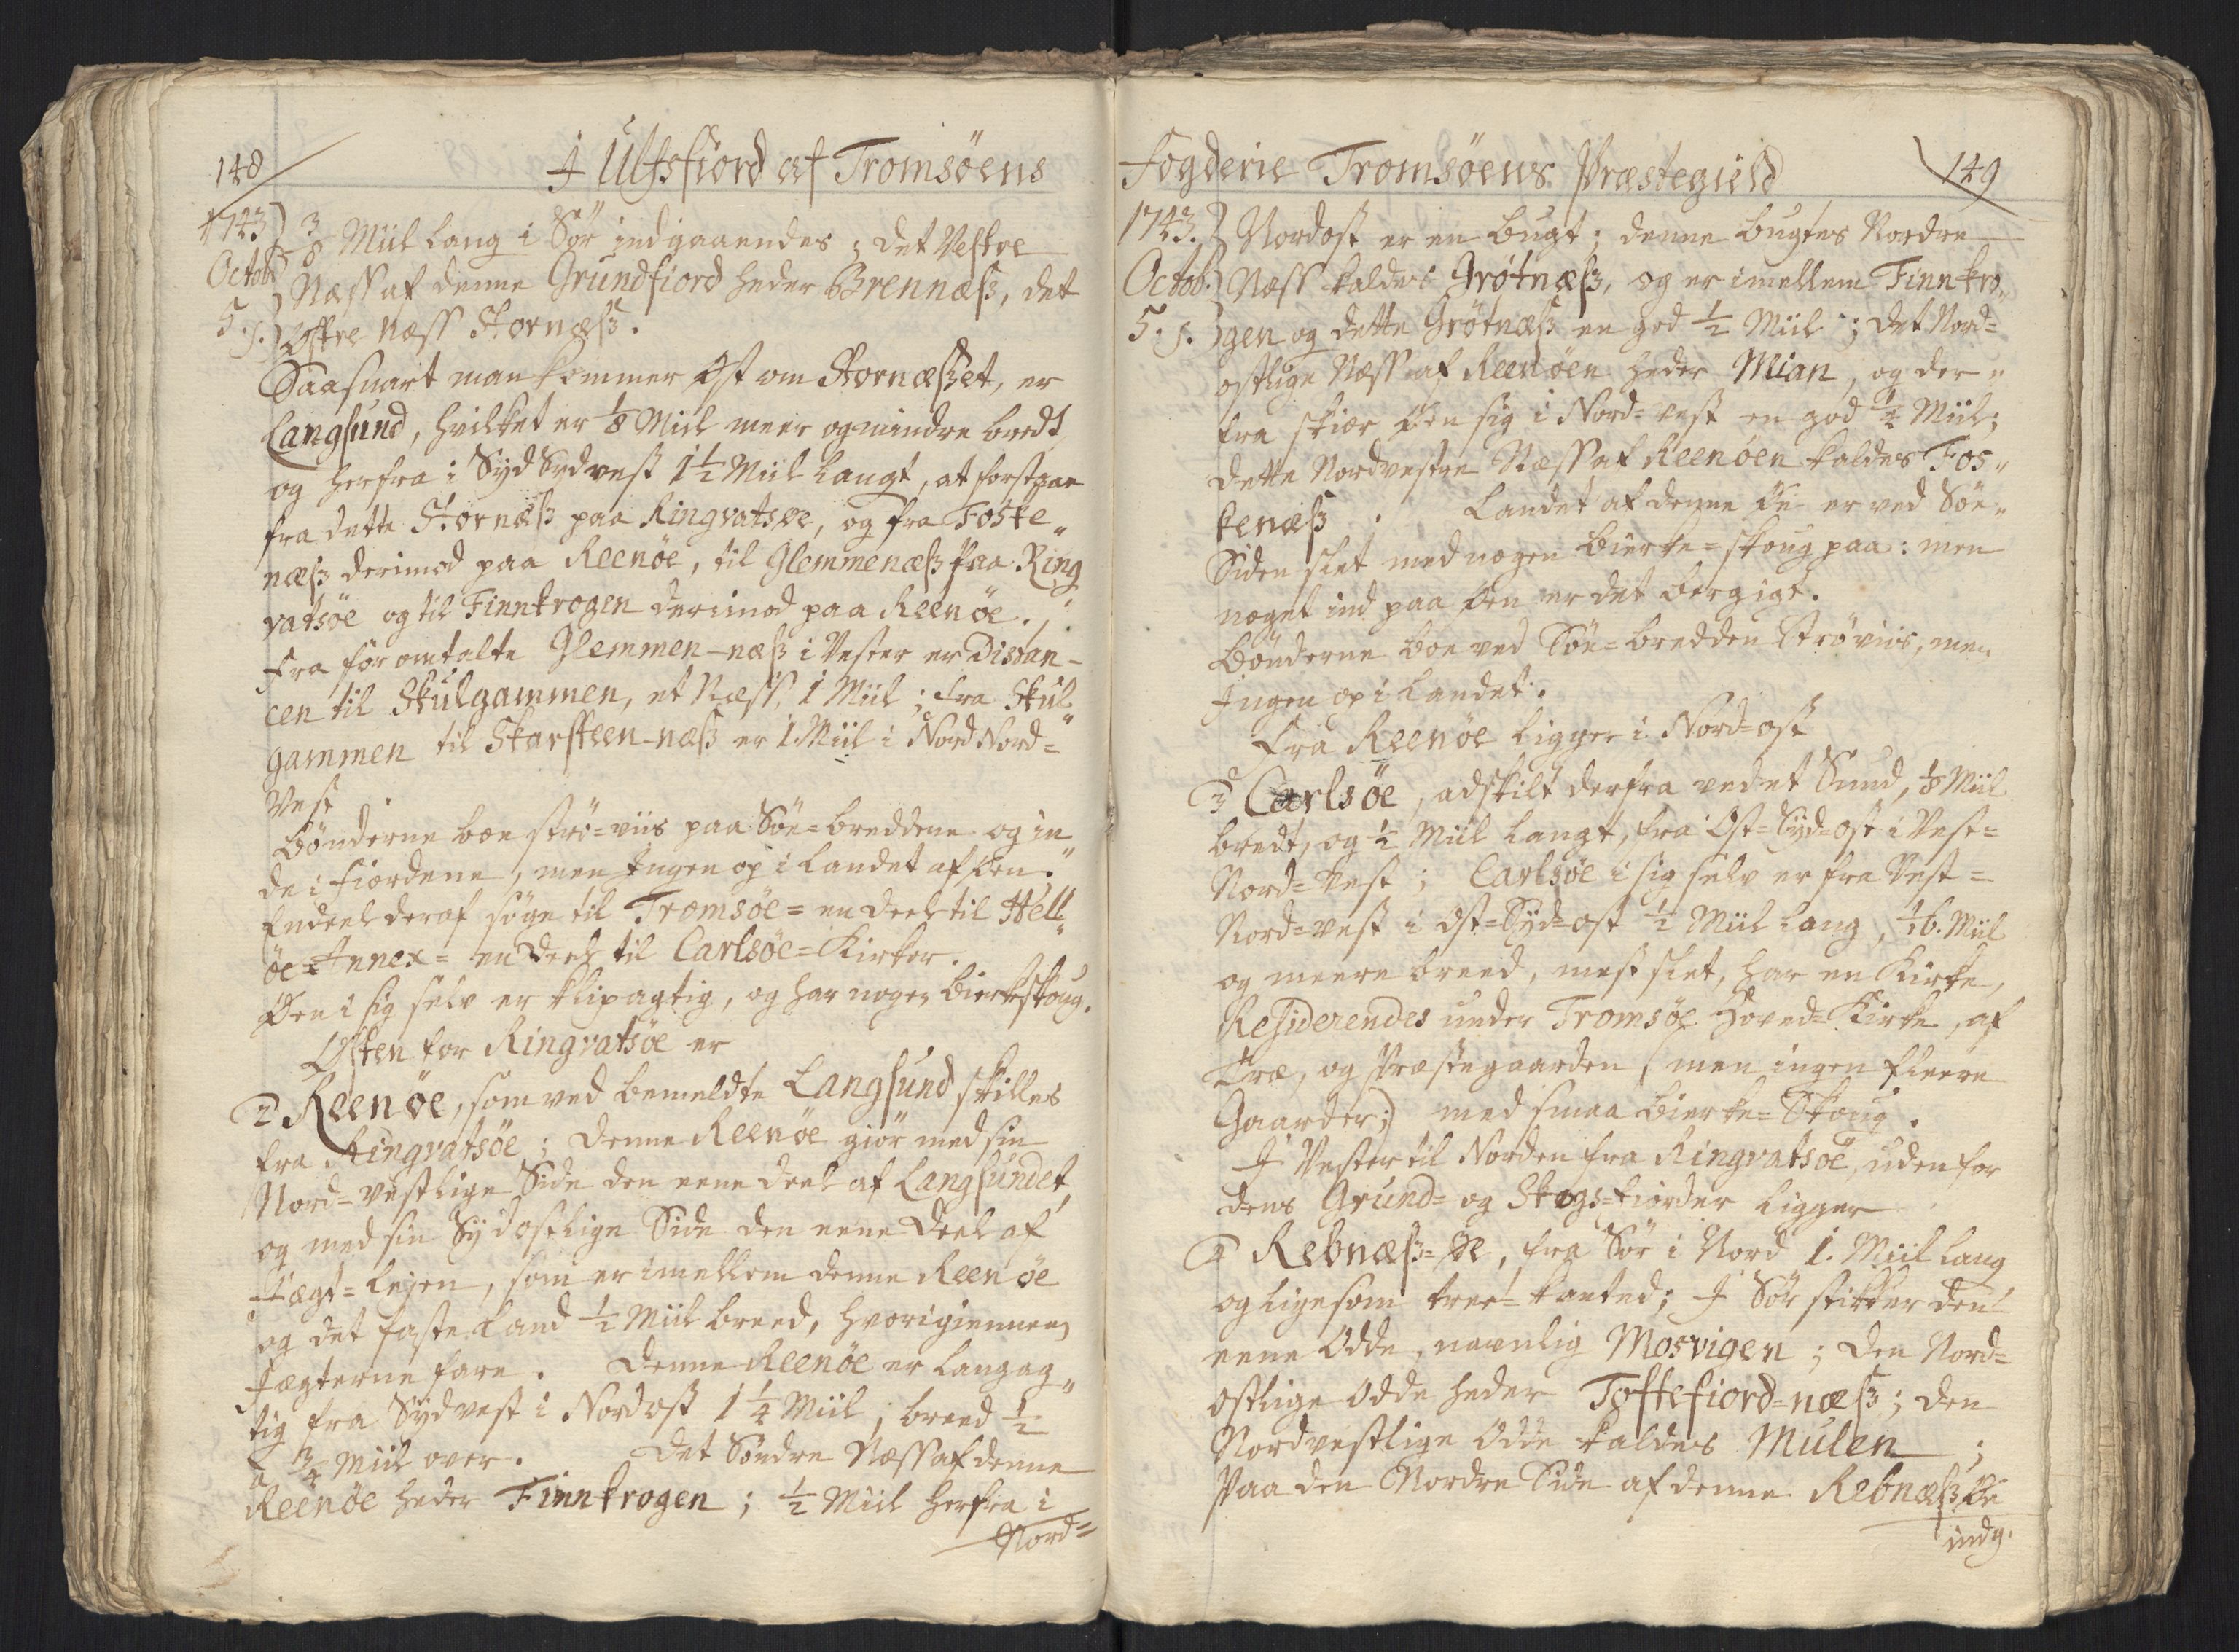 148
I Ulfsfiord af Tromsöens
1743
Octob.
5. s.
3/8 Miil lang i Sör indgaaendes; det Vestre
Næss af denne Grundfiord heder Brennæss, det
Østre Næss Stornæss.
Saasnart man kommer Øst om Stornæsset, er
Langsund, hvilket er 1/8 Miil meer og mindre bredt
og herfra i Syd Sydvest 1 1/2 Miil langt, at forstaae
fra dette Stornæss paa Ringvatsøe, og fra Foske„
næss derimod paa Reenöe, til Glemmenæss paa Ring„
vatsöe og til Finnkrogen derimod paa Reenöe.
Fra för omtalte Glemmen-næss i Vester er Distan-
cen til Skulgammen, et Næss, 1 Miil; fra Skul„
gammen til Skarsteen-næss er 1 Miil i Nord Nord=
Vest
Bönderne boe strö=viis paa Söe=breddene og in„
de i Fiordene, men Ingen op i Landet af Øen.
Endeel deraf söge til Tromsöe= en deel til Hell„
öe=Annex= en deel til Carlsöe=Kirker.
Øen i sig selv er klipagtig, og har nogen Birkeskoug.
Østen for Ringvatsöe er
2 Reenöe, som ved bemeldte Langsund skilles
fra Ringvatsöe; Denne Reenöe giör med sin
Nord=vestlige Side den eene Deel af Langsundet,
og med sin Sydostlige Side den eene Deel af
Jægt=Lejen, som er imellem denne Reenöe
og det faste Land 1/2 Miil breed, hvorigiennem
Jægterne fare. Denne Reenöe er langag„
tig fra Sydvest i Nordost 1 1/4 Miil, breed 1/2
a 3/4 Miil over. Det Söndre Næss af denne
Reenöe heder Finnkrogen; 1/2 Miil herfra i
Nord=
Fogderie Tromsöens Præstegield
149
1743.
Octob.
5. s.
Nordost er en bugt; denne bugtes Nordre
Næss kaldes Grötnæss, og er imellem Finnkro„
gen og dette Grötnæss en god 1/2 Miil; det Nord=
ostlige Næss af Reenöen heder Mian, og der„
fra skiær Øen sig i Nord=vest en god 1/2 Miil;
dette Nordvestre Næss af Reenöen kaldes Fos„
kenæss. Landet af denne Øe er ved Söe„
Siden slet med nogen Bierke=skoug paa: men
noget ind paa Øen er det bergigt.
Bönderne boe ved Söe=bredden ströviis, men
Ingen op i Landet.
Fra Reenöe ligger i Nord=ost
3 Carlsöe, adskilt derfra ved et Sund, 1/8 Miil
bredt, og 1/2 Miil langt, fra Ost=Syd=ost i Vest=
Nord=Vest; Carlsöe i sig selv er fra Vest=
Nord=vest i Ost=Syd=ost 1/2 Miil lang, 1/16. Miil
og meere breed, mest slet, har en Kirke,
Residerendes under Tromsöe Hoved=Kirke, af
Træ, og Præstegaarden, men ingen fleere
Gaarder;) med smaa Bierke=Skoug.
I Vester til Norden fra Ringvatsöe, uden for
dens Grund= og Skogs=fiorder ligger
4 Rebnæss=Øe, fra Sör i Nord 1. Miil lang
og ligesom tree=kanted; I Sör stikker den
eene Odde, navnlig Mosvigen; Den Nord=
ostlige Odde heder Toftefiord=næss; den
Nordvestlige Odde kaldes Mulen;
Paa den Nordre Side af denne Rebnæss Øe
indg.